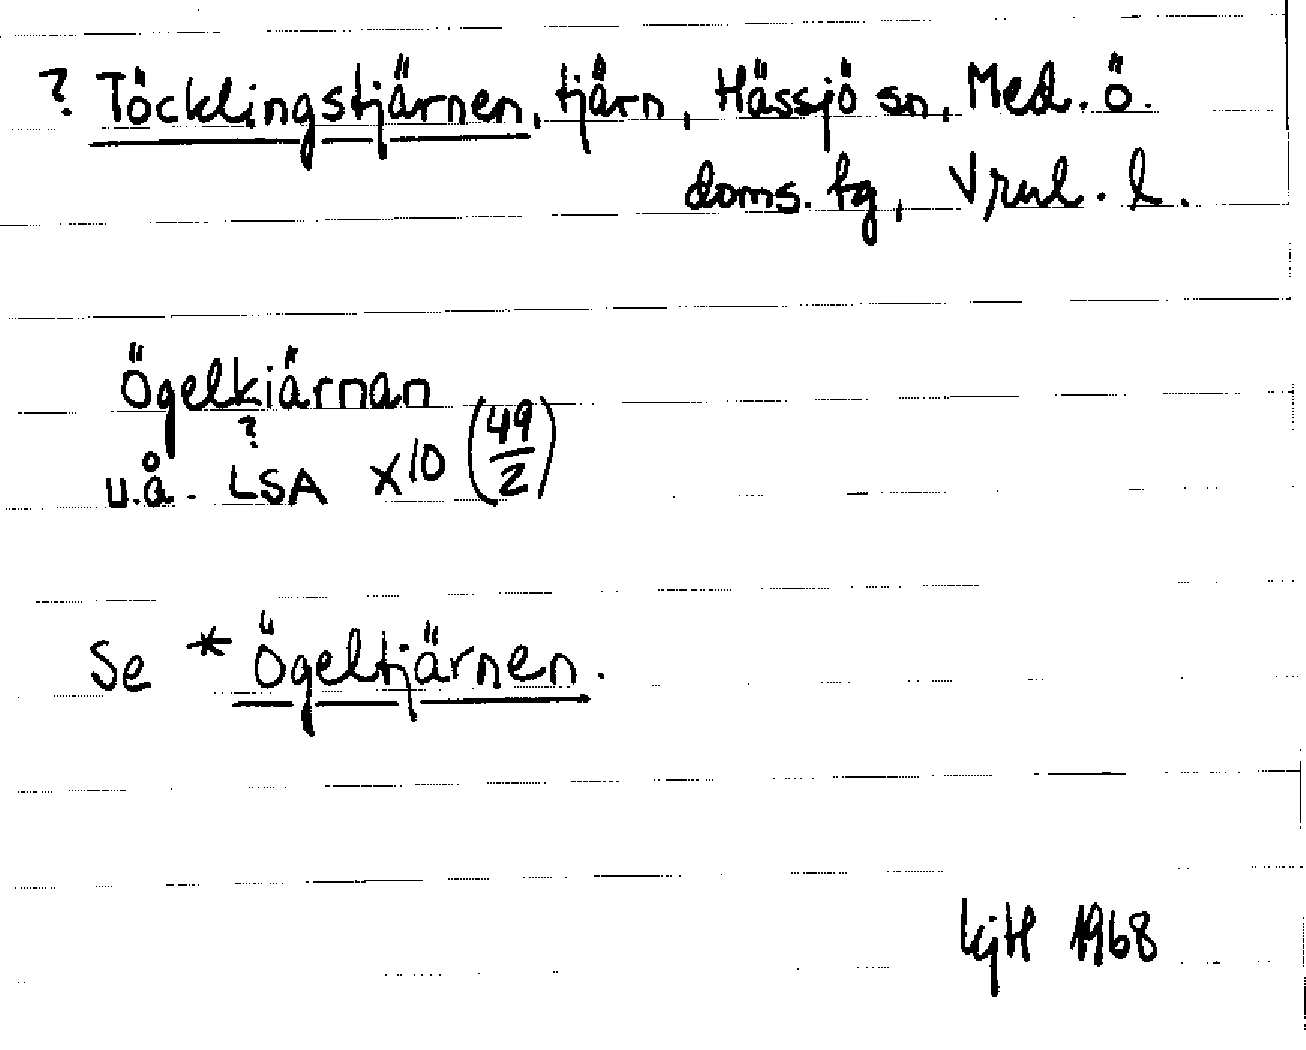 ? Töcklingstjärnen, tjärn, Hässjö sn, Med. ö.
doms. tg, Vrnl. l.
Ögelkiärnan
?
u.å. LSA X10 (49/2)
Se * Ögeltjärnen.
kjH 1968